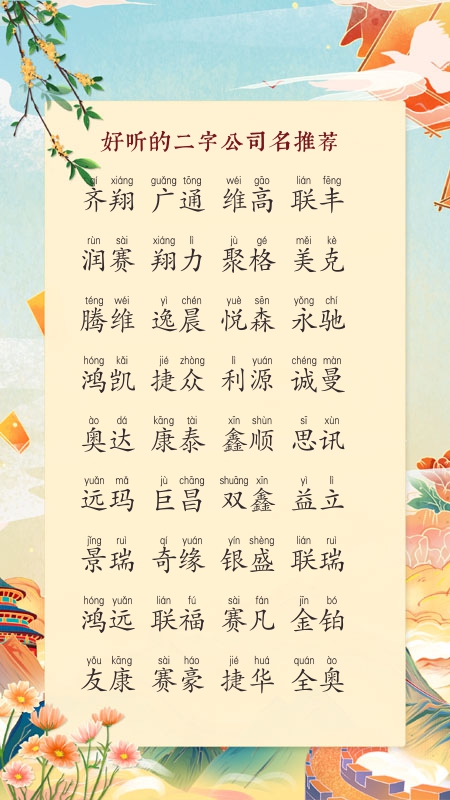 好听的二字公司名推荐
qí xiáng guǎng tōng wéi gāo lián fēng
齐翔 广通 维高 联丰
rùn sài xiáng lì jù gé měi kè
润赛 翔力 聚格 美克
téng wéi yì chén yuè sēn yǒng chí
腾维 逸晨 悦森 永驰
hóng kǎi jié zhòng lì yuán chéng màn
鸿凯 捷众 利源 诚曼
ào dá kāng tài xīn shùn sī xùn
奥达 康泰 鑫顺 思讯
yuǎn mǎ jù chāng shuāng xīn yì lì
远玛 巨昌 双鑫 益立
jǐng ruì qí yuán yín shèng lián ruì
景瑞 奇缘 银盛 联瑞
hóng yuǎn lián fú sài fán jīn bó
鸿远 联福 赛凡 金铂
yǒu kāng sài háo jié huá quán ào
友康 赛豪 捷华 全奥